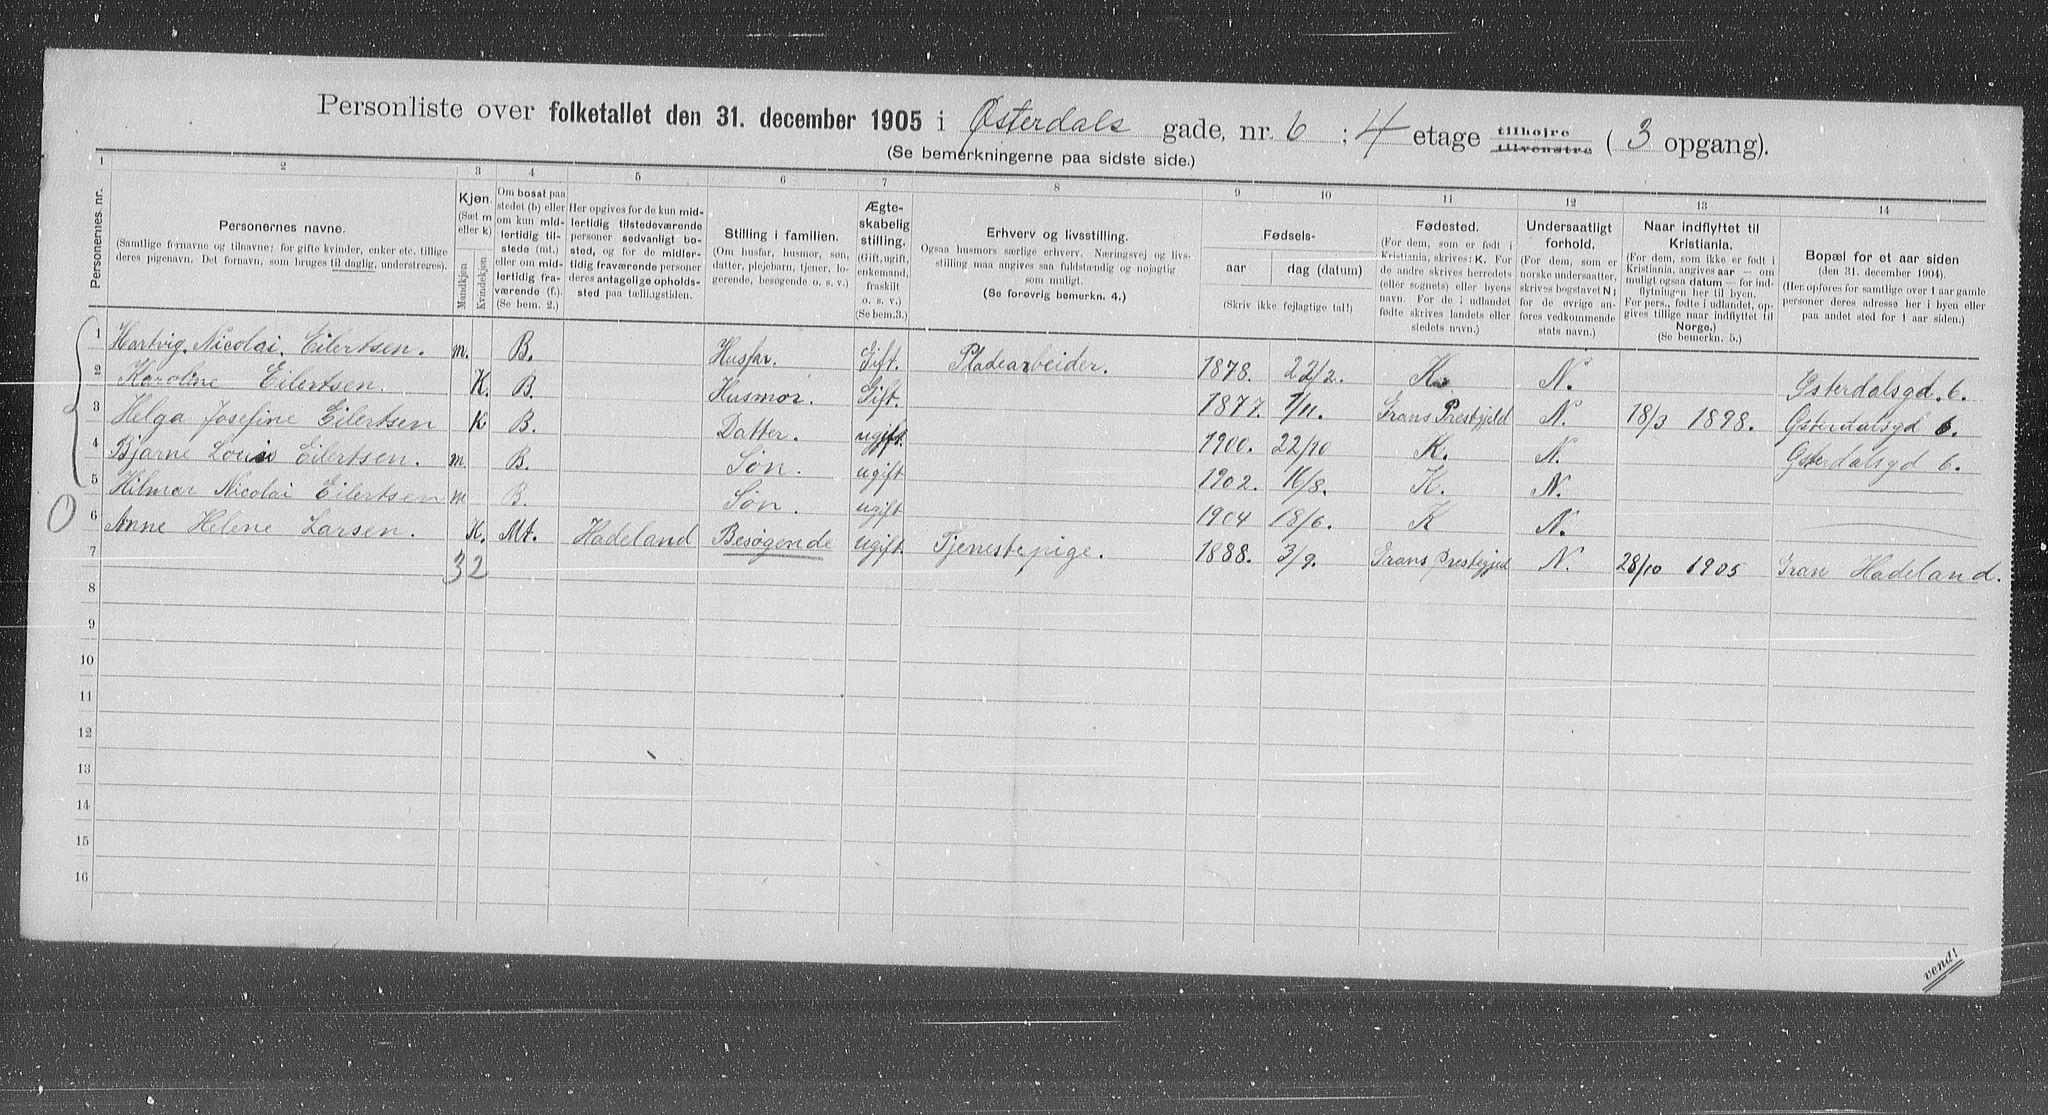 Personliste over folketallet den 31. december 1905 i Østerdals gade, nr. 6 ; 4 etage tilhøjre tilvenstre ( 3 opgang).
(Se bemerkningerne paa sidste side.)
1 2 3 4 5 6 7 8 9 10 11 12 13 14
Personernes nr.
Personernes navne.
(Samtlige fornavne og tilnavne; for gifte kvinder, enker etc. tillige
deres pigenavn. Det fornavn, som bruges til daglig, understreges).
Kjøn.
(Sæt m
eller k)
Mandkjøn
Kvindekjøn.
Om bosat paa
stedet (b) eller
om kun mid-
lertidig til-
stede (mt.)
eller om mid-
lertidig fra-
værende (f.)
(Se bem. 2.)
Her opgives for de kun mid-
lertidig tilstedeværende
personer sedvanligt bo-
sted, og for de midler-
tidig fraværende personer
deres antagelige opholds-
sted paa tællingstiden.
Stilling i familien.
(Om husfar, husmor, søn,
datter, plejebarn, tjener, lo-
gerende, besøgende o. s. v.)
Ægte-
skabelig
stilling.
(Gift, ugift,
enkemand,
fraskilt
o. s. v.)
(Se bem.3.)
Erhverv og livsstilling.
Ogsaa husmors særlige erhverv. Næringsvej og livs-
stilling maa angives saa fuldstændig og nøjagtig
som muligt.
(Se forøvrig bemerkn. 4.)
Fødsels-
aar
dag (datum)
(Skriv ikke fejlagtige tal!)
Fødested.
(For dem, som er født i
Kristiania, skrives: K. For
de andre skrives herredets
(eller sognets) eller byens
navn. For de i udlandet
fødte skrives landets eller
stedets navn.)
Undersaatligt
forhold.
(For dem, som er
norske undersaatter,
skrives bogstavet N;
for de øvrige an-
føres vedkommende
stats navn.)
Naar indflyttet til
Kristiania.
(For dem, som ikke er født i
Kristiania, angives aar — om
muligt ogsaa datum — for ind-
flytningen her til byen.
For pers., fødte i udlandet, op-
gives tillige naar indflyttet til
Norge.)
(Se bemerkn. 5.)
Bopæl for et aar siden
(den 31. december 1904).
(Her opføres for samtlige over 1 aar gamle
personer deres adresse her i byen eller
paa andet sted for 1 aar siden.)
1 Hartvig. Nicolai. Eilertsen. m. B. Husfar. Gift. Pladearbeider. 1878. 22/2. K. N. Østerdalsgd. 6.
2 Karoline Eilertsen. K. B. Husmor. Gift. 1877. 1/11. Grans Prestgjeld N. 18/3 1898. Østerdalsgd 6.
3 Helga Josefine Eilertsen K B. Datter. ugift. 1900. 22/10 K. N. Østerdalsgd 6.
4 Bjarne Louis Eilertsen. m. B. Søn. ugift 1902. 16/8. K. N.
5 Hilmar Nicolai Eilertsen m B. Søn. ugift 1904 18/6. K N.
6 Anne Helene Larsen. K. Mt. Hadeland Besøgende ugift. Tjenestepige. 1888. 3/9. Grans Prestegjeld N. 28/10 1905 Gran Hadeland.
7 32
8
9
10
11
12
13
14
15
16
vend!